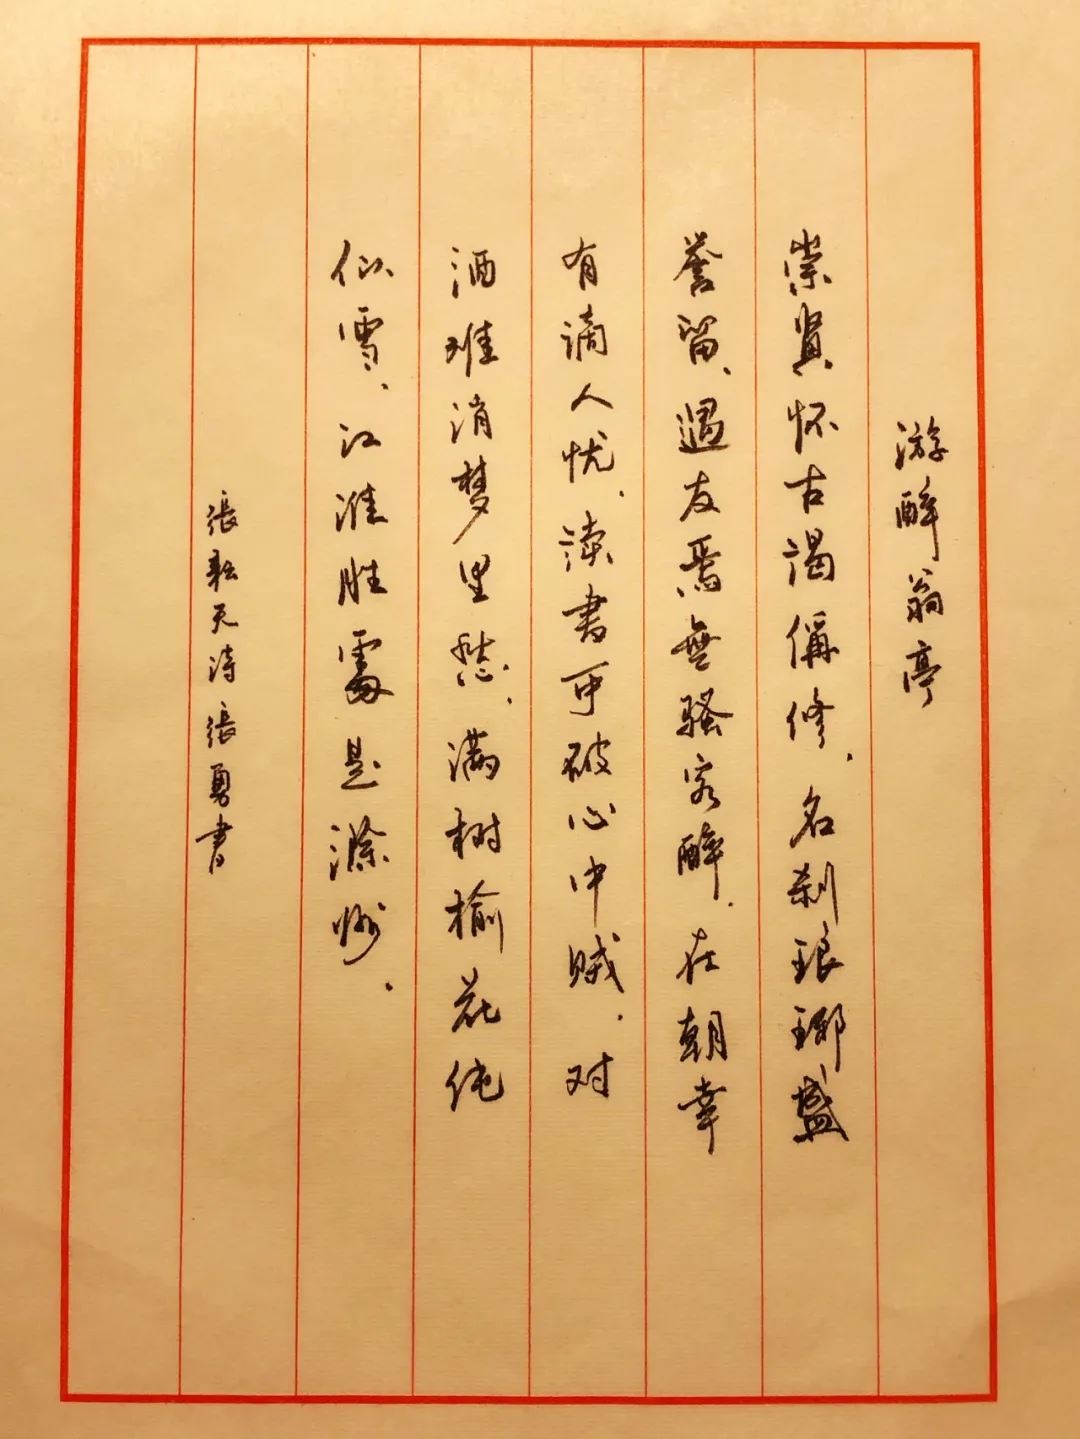 游醉翁亭
崇賢怀古谒偁修、名刹琅琊盛
誉留、遇友焉無骚客醉、在朝幸
有谪人忧、读书可破心中贼、对
酒难消梦里愁、满树榆花纯
似雪、江淮胜處是滁州、
張耘天诗張勇書